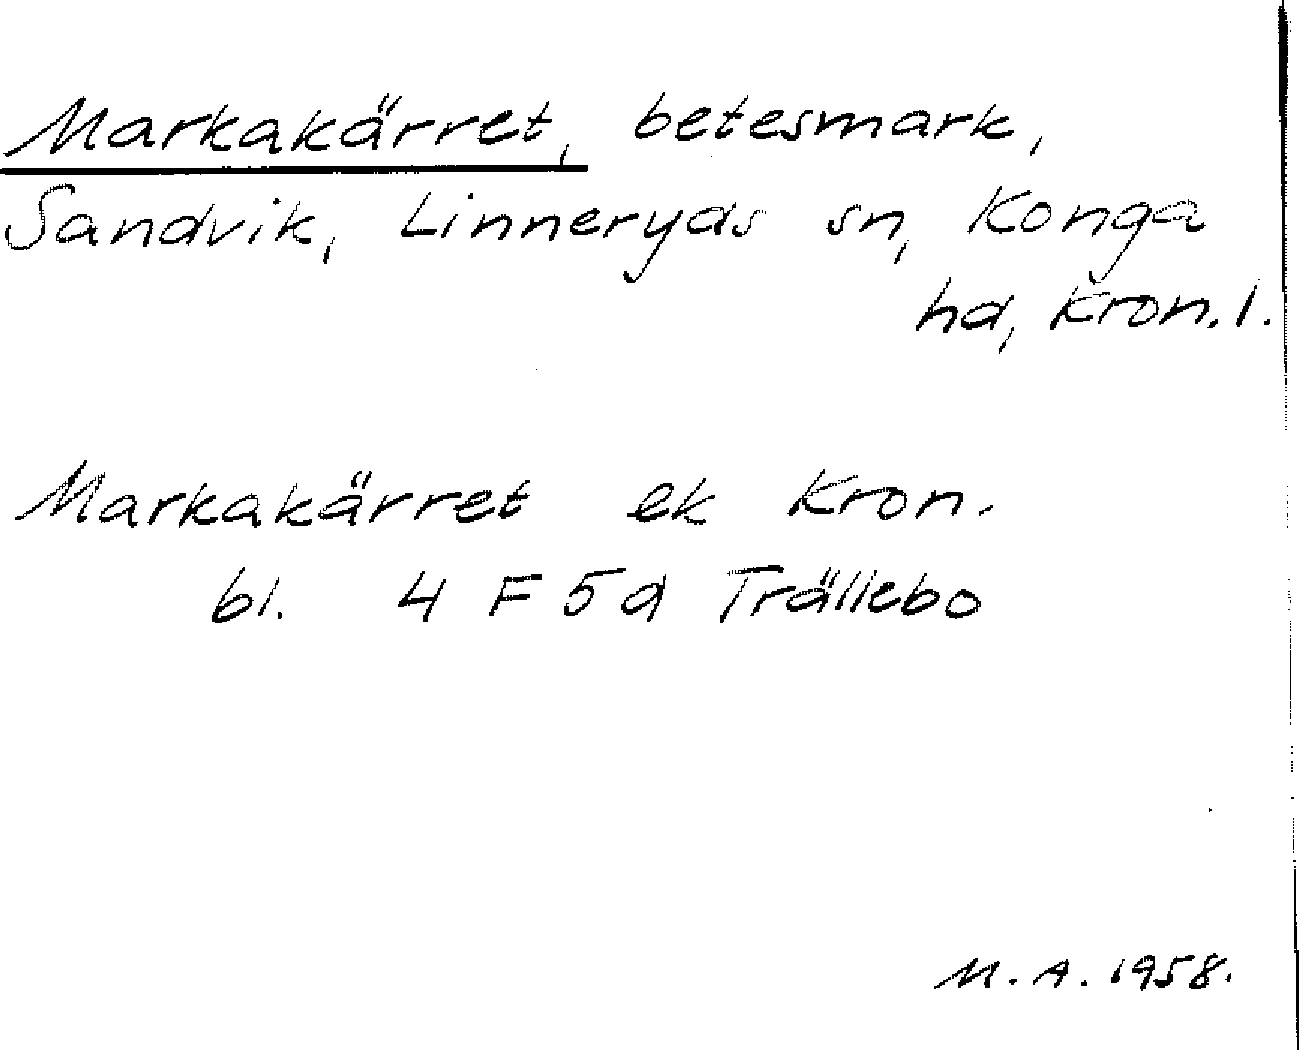 Markakärret, betesmark,
Sandvik, Linneryds sn, Konga
hd, Kron. l.
Markakärret ek Kron.
bl. 4 F 5d Trällebo
M. A. 1958.